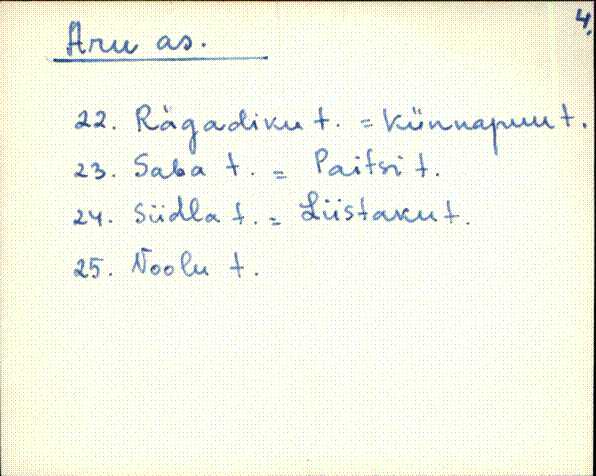 4.
Aru as.
22. Rägadiku t. = Künnapuu t.
23. Saba t. = Paitsi t.
24. Südla t. = Liistaku t.
25. Noolu t.